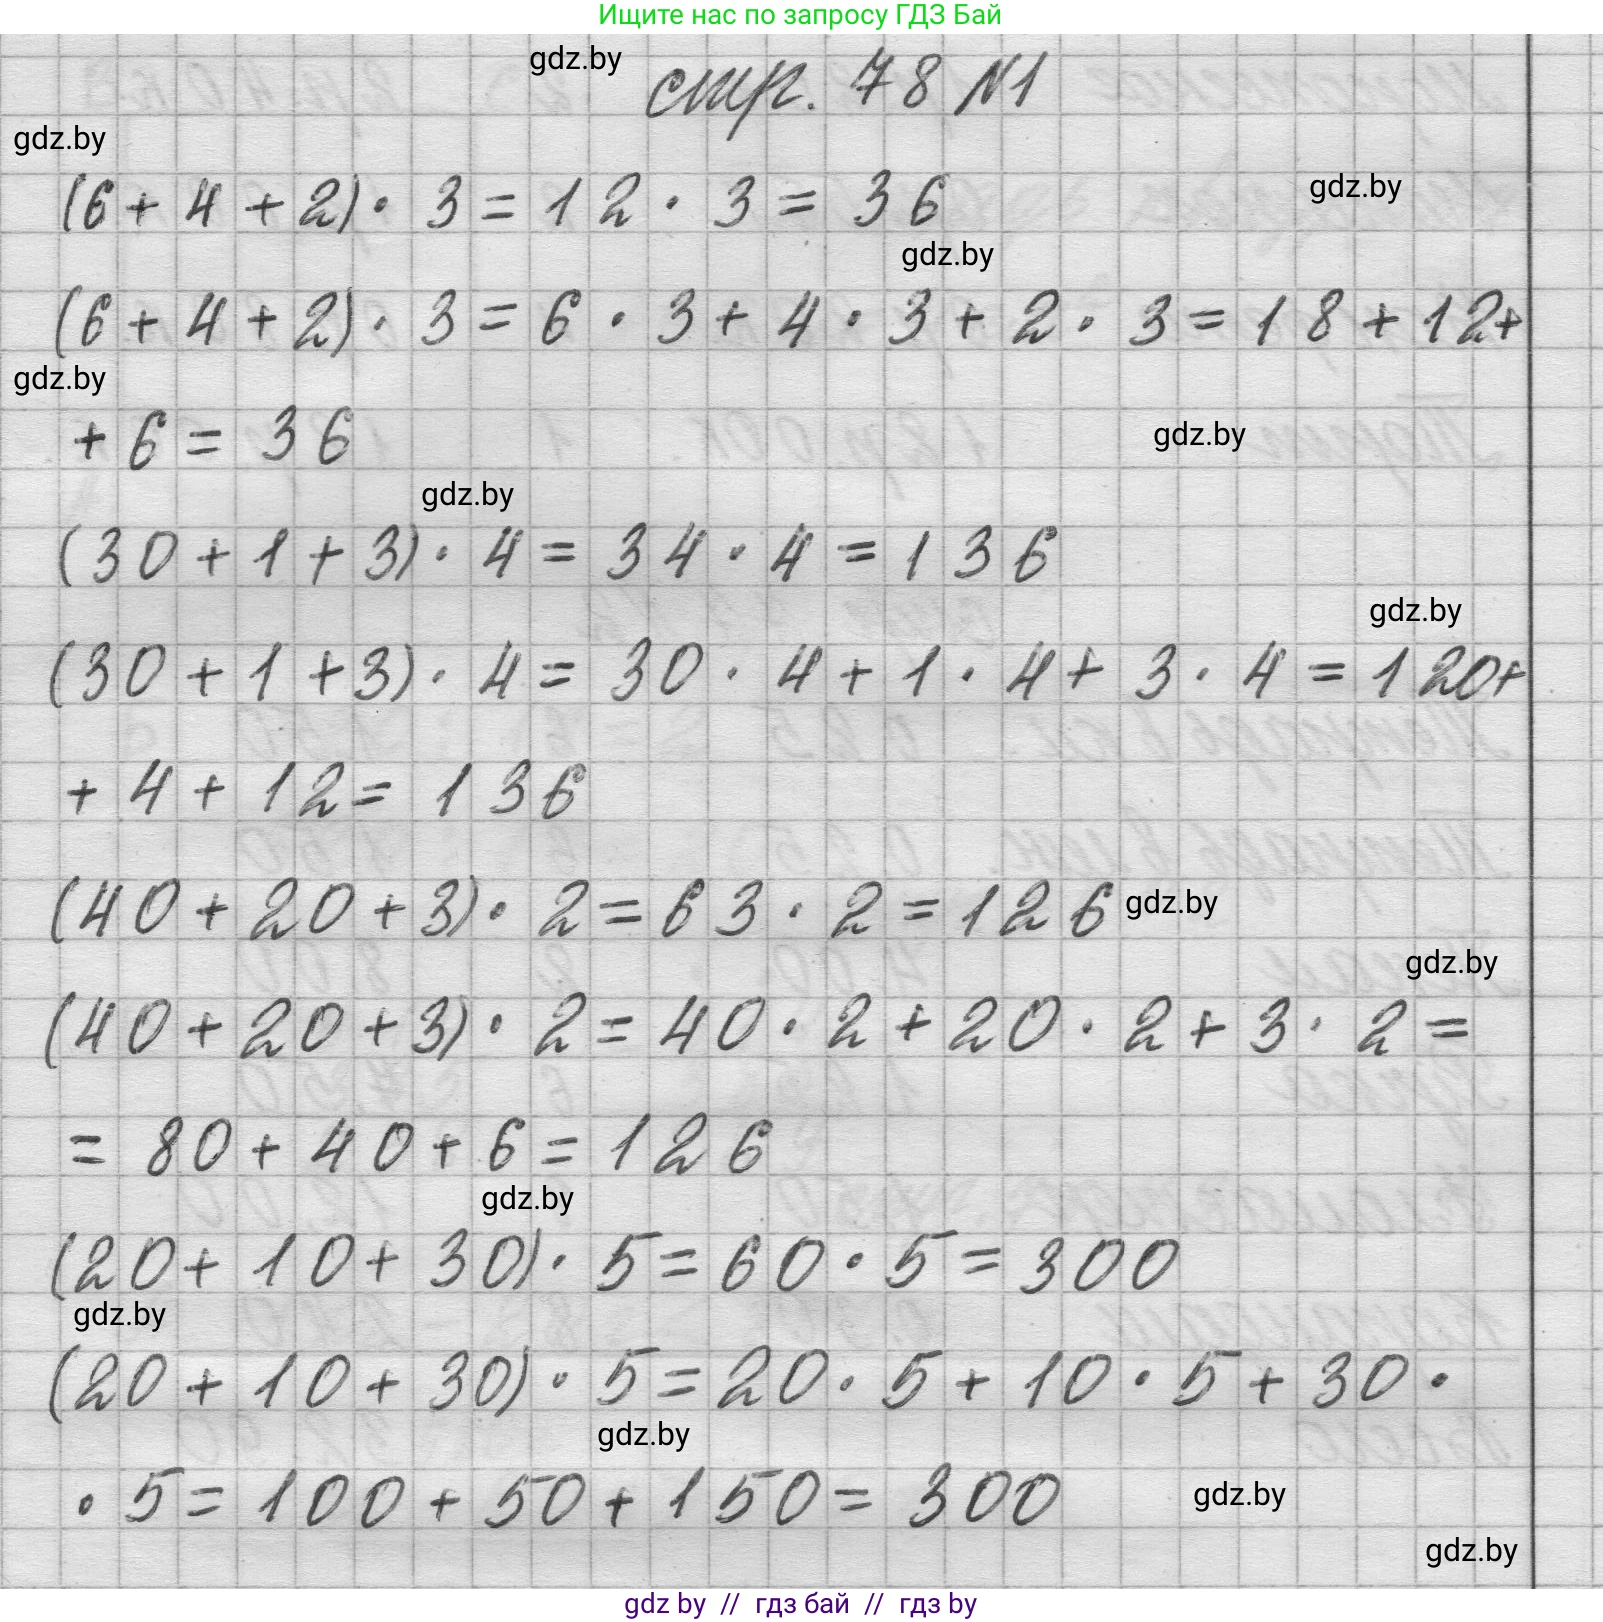 Ищите нас по запросу ГДЗ Бай
gdz.by
стр. 78 №1
gdz.by
(6+4+2)· 3=12·3=36
gdz.by
gdz.by
(6+4+2)·3=6·3+4·3+2·3=18+12+
gdz.by
+6=36
gdz.by
gdz.by
(30+1+3)·4=34·4=136
gdz.by
(30+1+3)·4=30·4+1·4+3·4=120+
+4+12=136
(40+20+3)·2=63·2=126
gdz.by
gdz.by
(40+20+3)·2=40·2+20·2+3·2=
=80+40+6=126
gdz.by
(20+10+30)·5=60·5=300
gdz.by
(20+10+30)·5=20·5+10·5+30·
gdz.by
·5=100+50+150=300
gdz.by
gdz.by
gdz by // гдз бай // гдз by